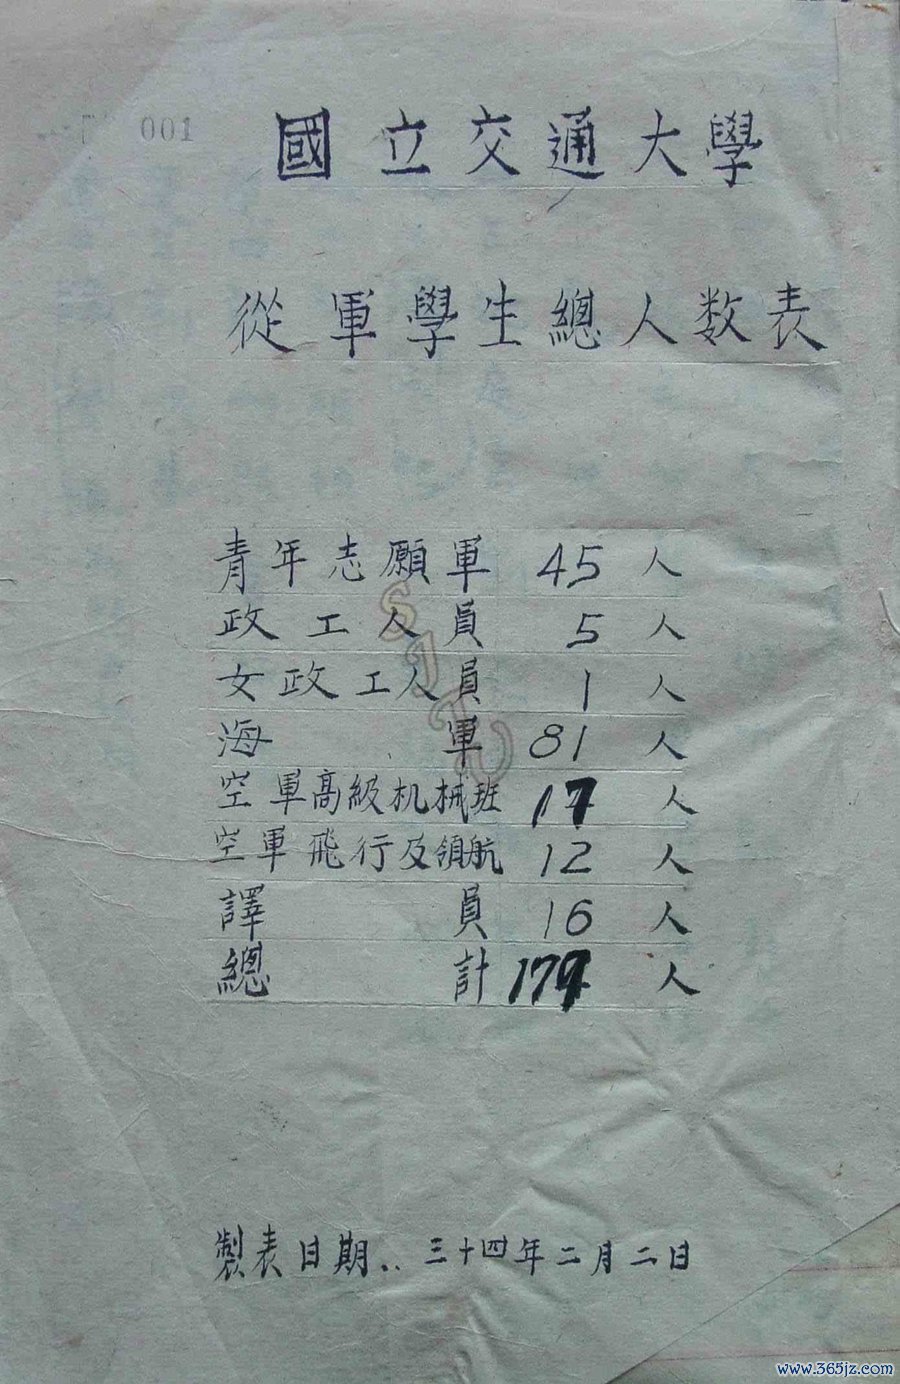 001
國立交通大學
從軍學生總人数表
青年志願軍 45 人
政工人員 5 人
女政工人員 1 人
海軍 81 人
空軍高級机械班 17 人
空軍飛行及領航 12 人
譯員 16 人
總計 177 人
SJTU
製表日期：三十四年二月二日
www.365jz.com